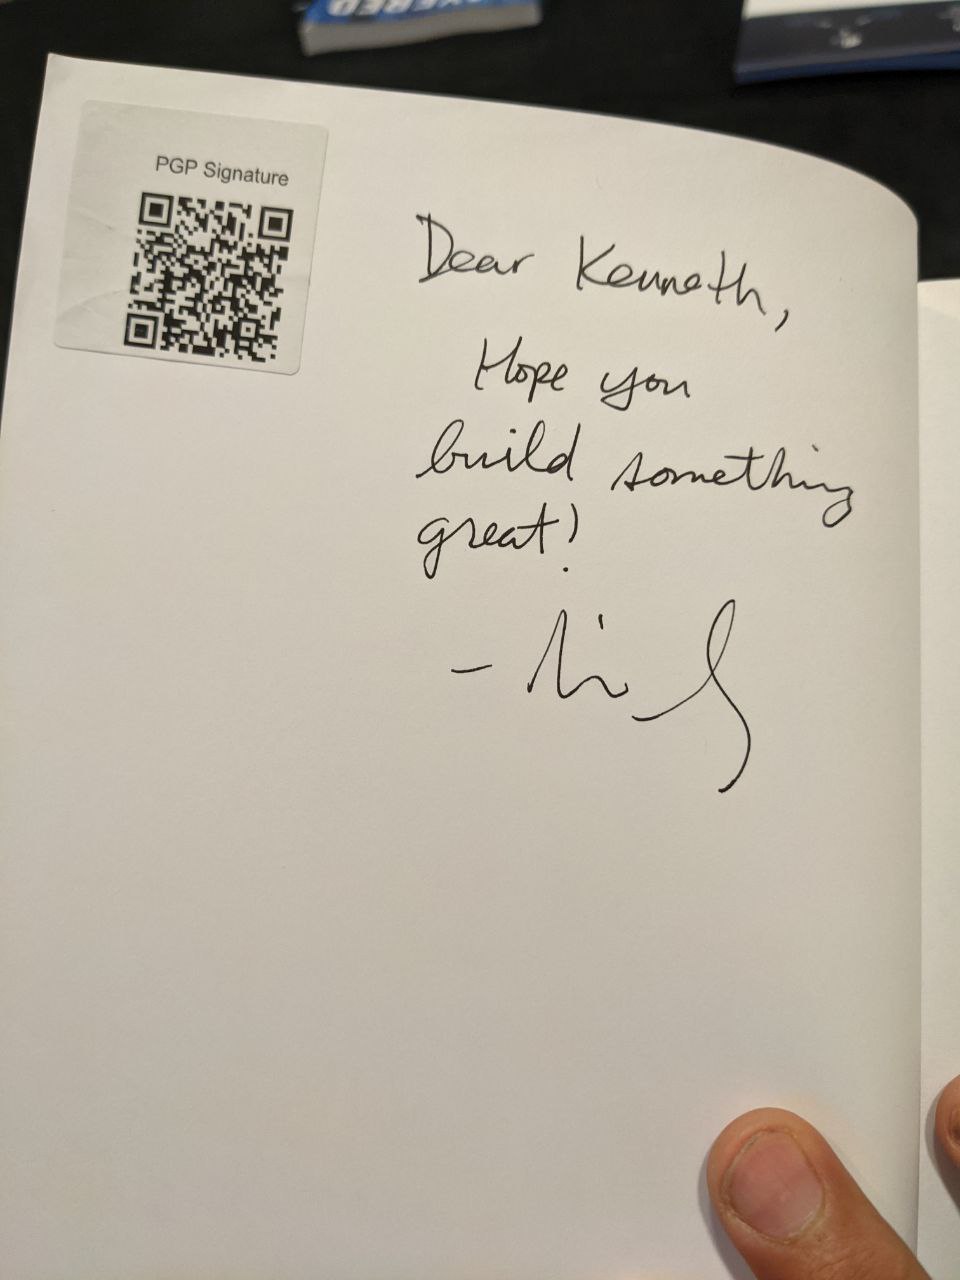 PGP Signature
Dear Kenneth,
Hope you
build something
great!